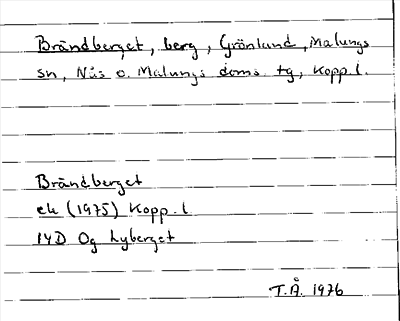 Brändberget, berg, Grönland, Malungs
sn, Nås o. Malungs doms. tg, Kopp. l.
Brändberget
ek (1975) Kopp. l
14D Og Lyberget
T.Å. 1976